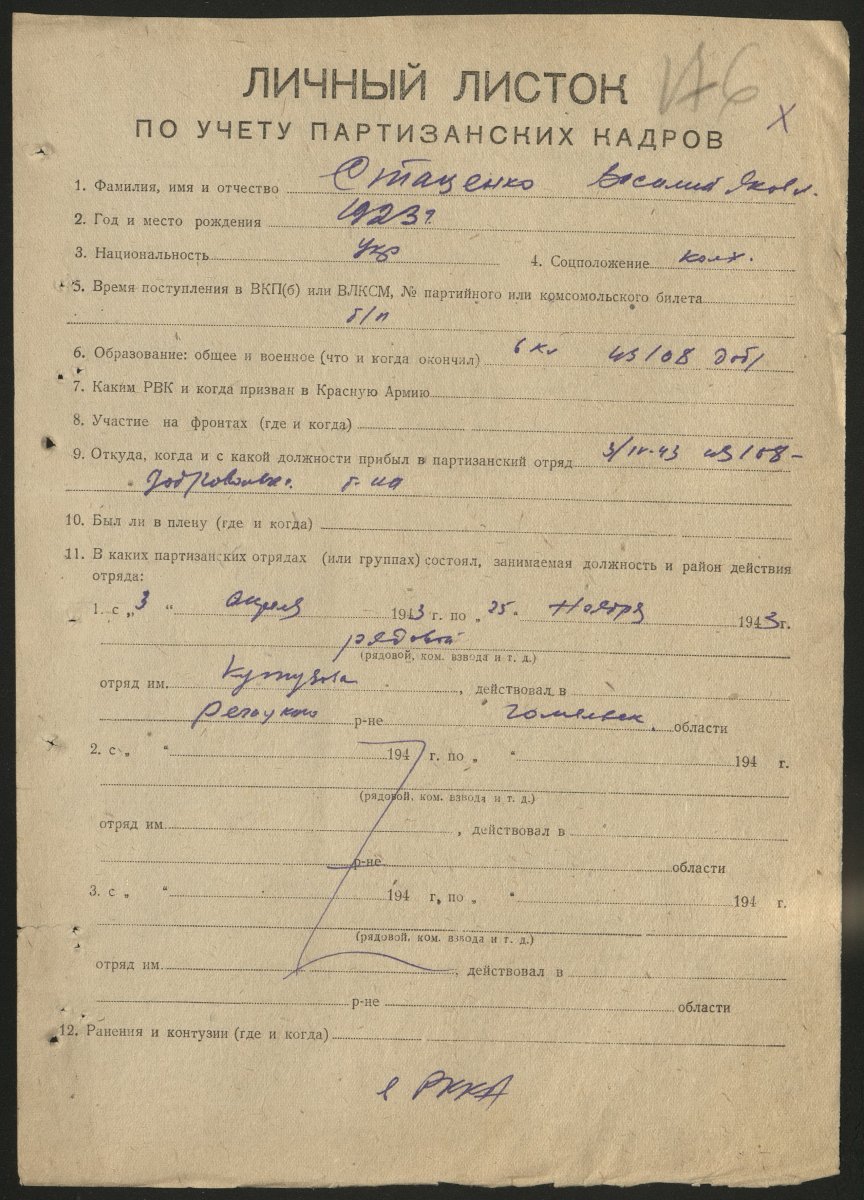 176
ЛИЧНЫЙ ЛИСТОК
х
ПО УЧЕТУ ПАРТИЗАНСКИХ КАДРОВ
1. Фамилия, имя и отчество Стаценко Василий Яковл.
2. Год и место рождения 1923 г.
3. Национальность Укр 4. Соцположение колх.
5. Время поступления в ВКП(б) или ВЛКСМ, № партийного или комсомольского билета
б/п
6. Образование: общее и военное (что и когда окончил) 6 кл
7. Каким РВК и когда призван в Красную Армию
8. Участие на фронтах (где и когда)
9. Откуда, когда и с какой должности прибыл в партизанский отряд 3/IV-43
10. Был ли в плену (где и когда)
11. В каких партизанских отрядах (или группах) состоял, занимаемая должность и район действия
отряда:
1. с „3“ апреля 1943 г. по „25“ Ноября 1943 г.
рядовой
(рядовой, ком. взвода и т. д.)
отряд им. Кутузова, действовал в
Речицком р-не Гомельск. области
2. с „ “ 194 г. по „ “ 194 г.
(рядовой, ком. взвода и т. д.)
отряд им. , действовал в
р-не области
3. с „ “ 194 г. по „ “ 194 г.
(рядовой, ком. взвода и т. д.)
отряд им. , действовал в
р-не области
12. Ранения и контузии (где и когда)
РККА